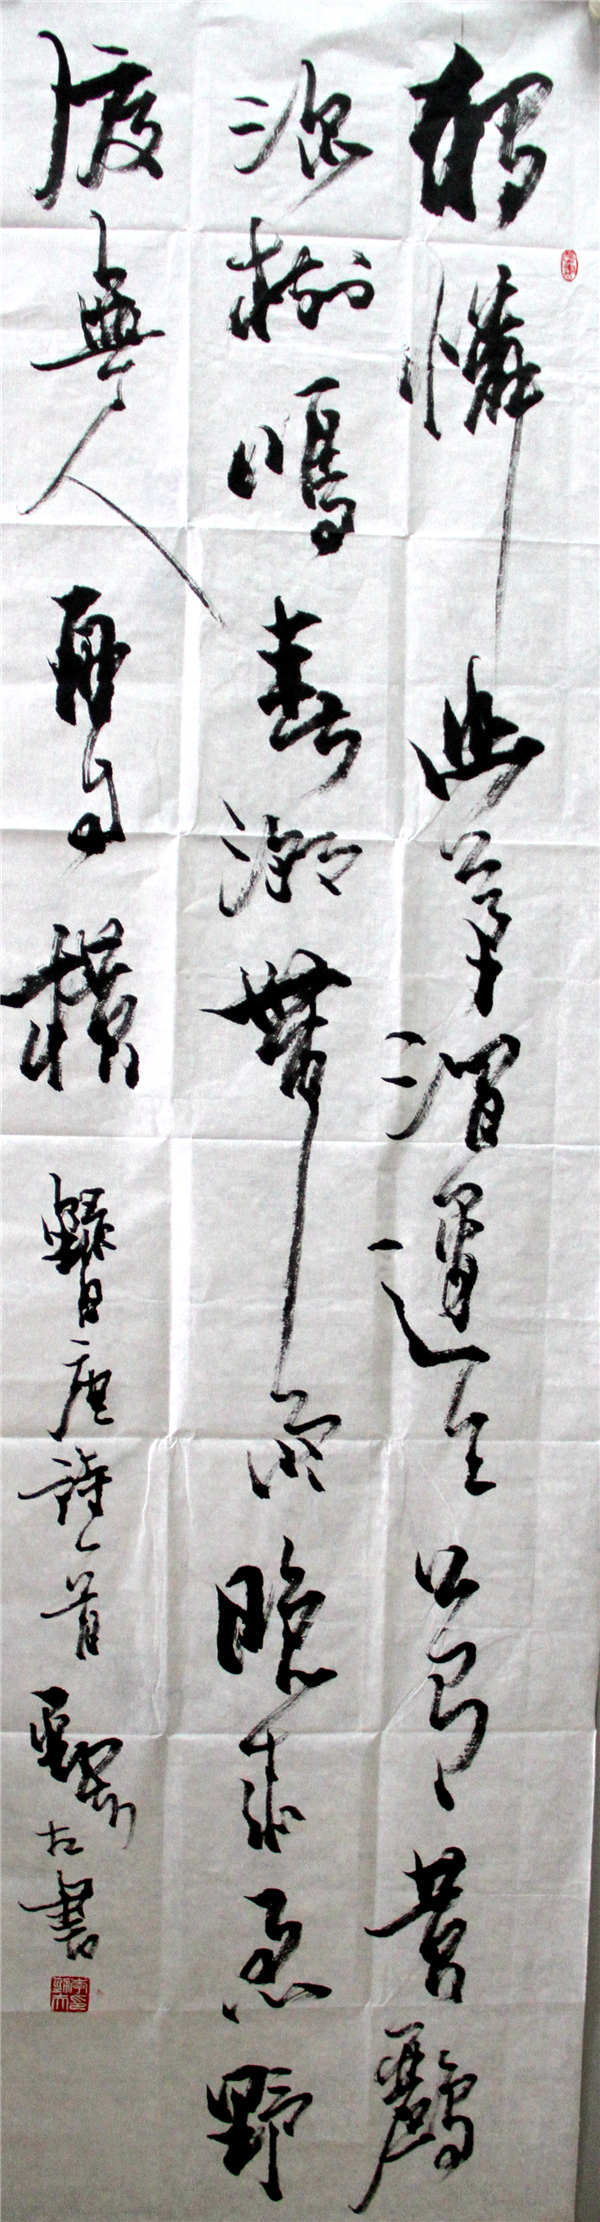 獨憐幽草澗邊生上有黃鸝
深樹鳴春潮帶雨晚來急野
渡無人舟自橫 唐詩一首 書